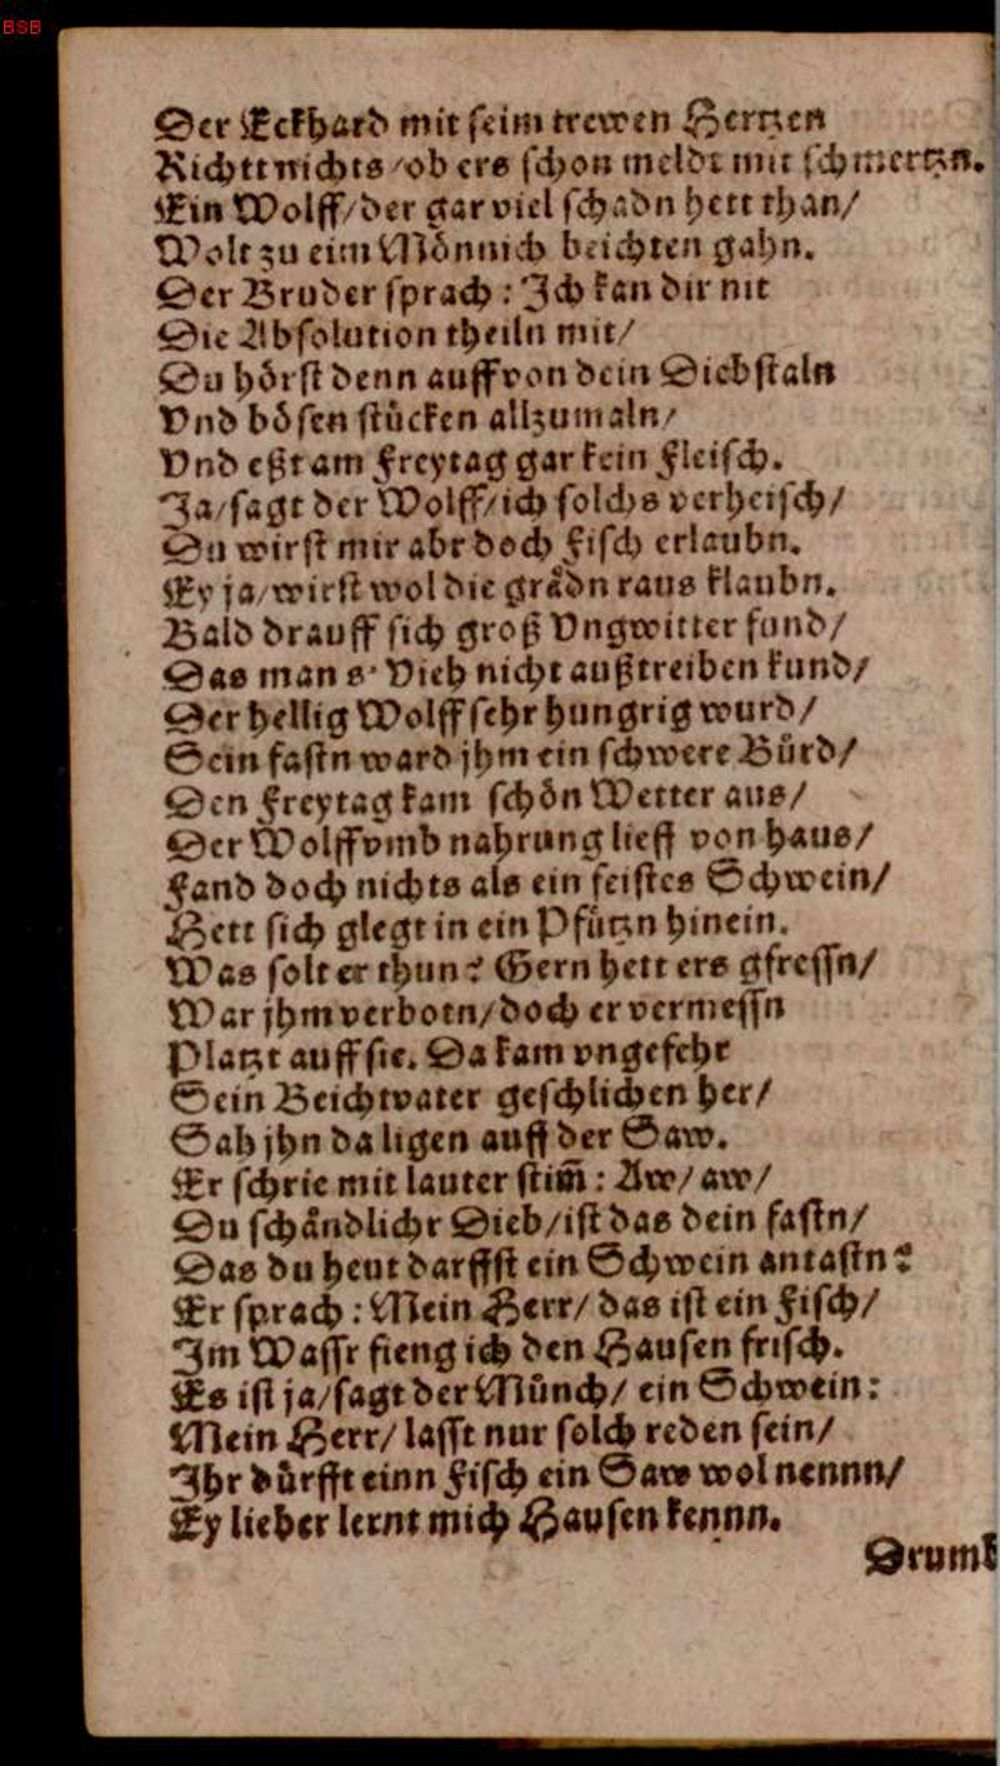 BSB
Der Eckhard mit seim trewen Hertzen
Richtt nichts/ob ers schon meldt mit schmertzn.
Ein Wolff/der gar viel schadn hett than/
Wolt zu eim Mönnich beichten gahn.
Der Bruder sprach: Ich kan dir nit
Die Absolution theiln mit/
Du hörst denn auff von dein Diebstaln
Vnd bösen stücken allzumaln/
Vnd eßt am Freytag gar kein Fleisch.
Ja/sagt der Wolff/ich solchs verheisch/
Du wirst mir abr doch Fisch erlaubn.
Ey ja/wirst wol die grädn raus klaubn.
Bald drauff sich groß Vngwitter fund/
Das man s' Vieh nicht außtreiben kund/
Der hellig Wolff sehr hungrig wurd/
Sein fastn ward jhm ein schwere Bürd/
Den Freytag kam schön Wetter aus/
Der Wolff vmb nahrung lieff von haus/
Fand doch nichts als ein feistes Schwein/
Hett sich glegt in ein Pfützn hinein.
Was solt er thun? Gern hett ers gfressn/
War jhm verbotn/doch er vermessn
Platzt auff sie. Da kam vngefehr
Sein Beichtvater geschlichen her/
Sah jhn da ligen auff der Saw.
Er schrie mit lauter stim̄: Aw/aw/
Du schändlichr Dieb/ist das dein fastn/
Das du heut darffst ein Schwein antastn?
Er sprach: Mein Herr/das ist ein Fisch/
Im Wassr fieng ich den Hausen frisch.
Es ist ja/sagt der Münch/ein Schwein:
Mein Herr/lasst nur solch reden sein/
Ihr dürfft einn Fisch ein Saw wol nennn/
Ey lieber lernt mich Hausen kennn.